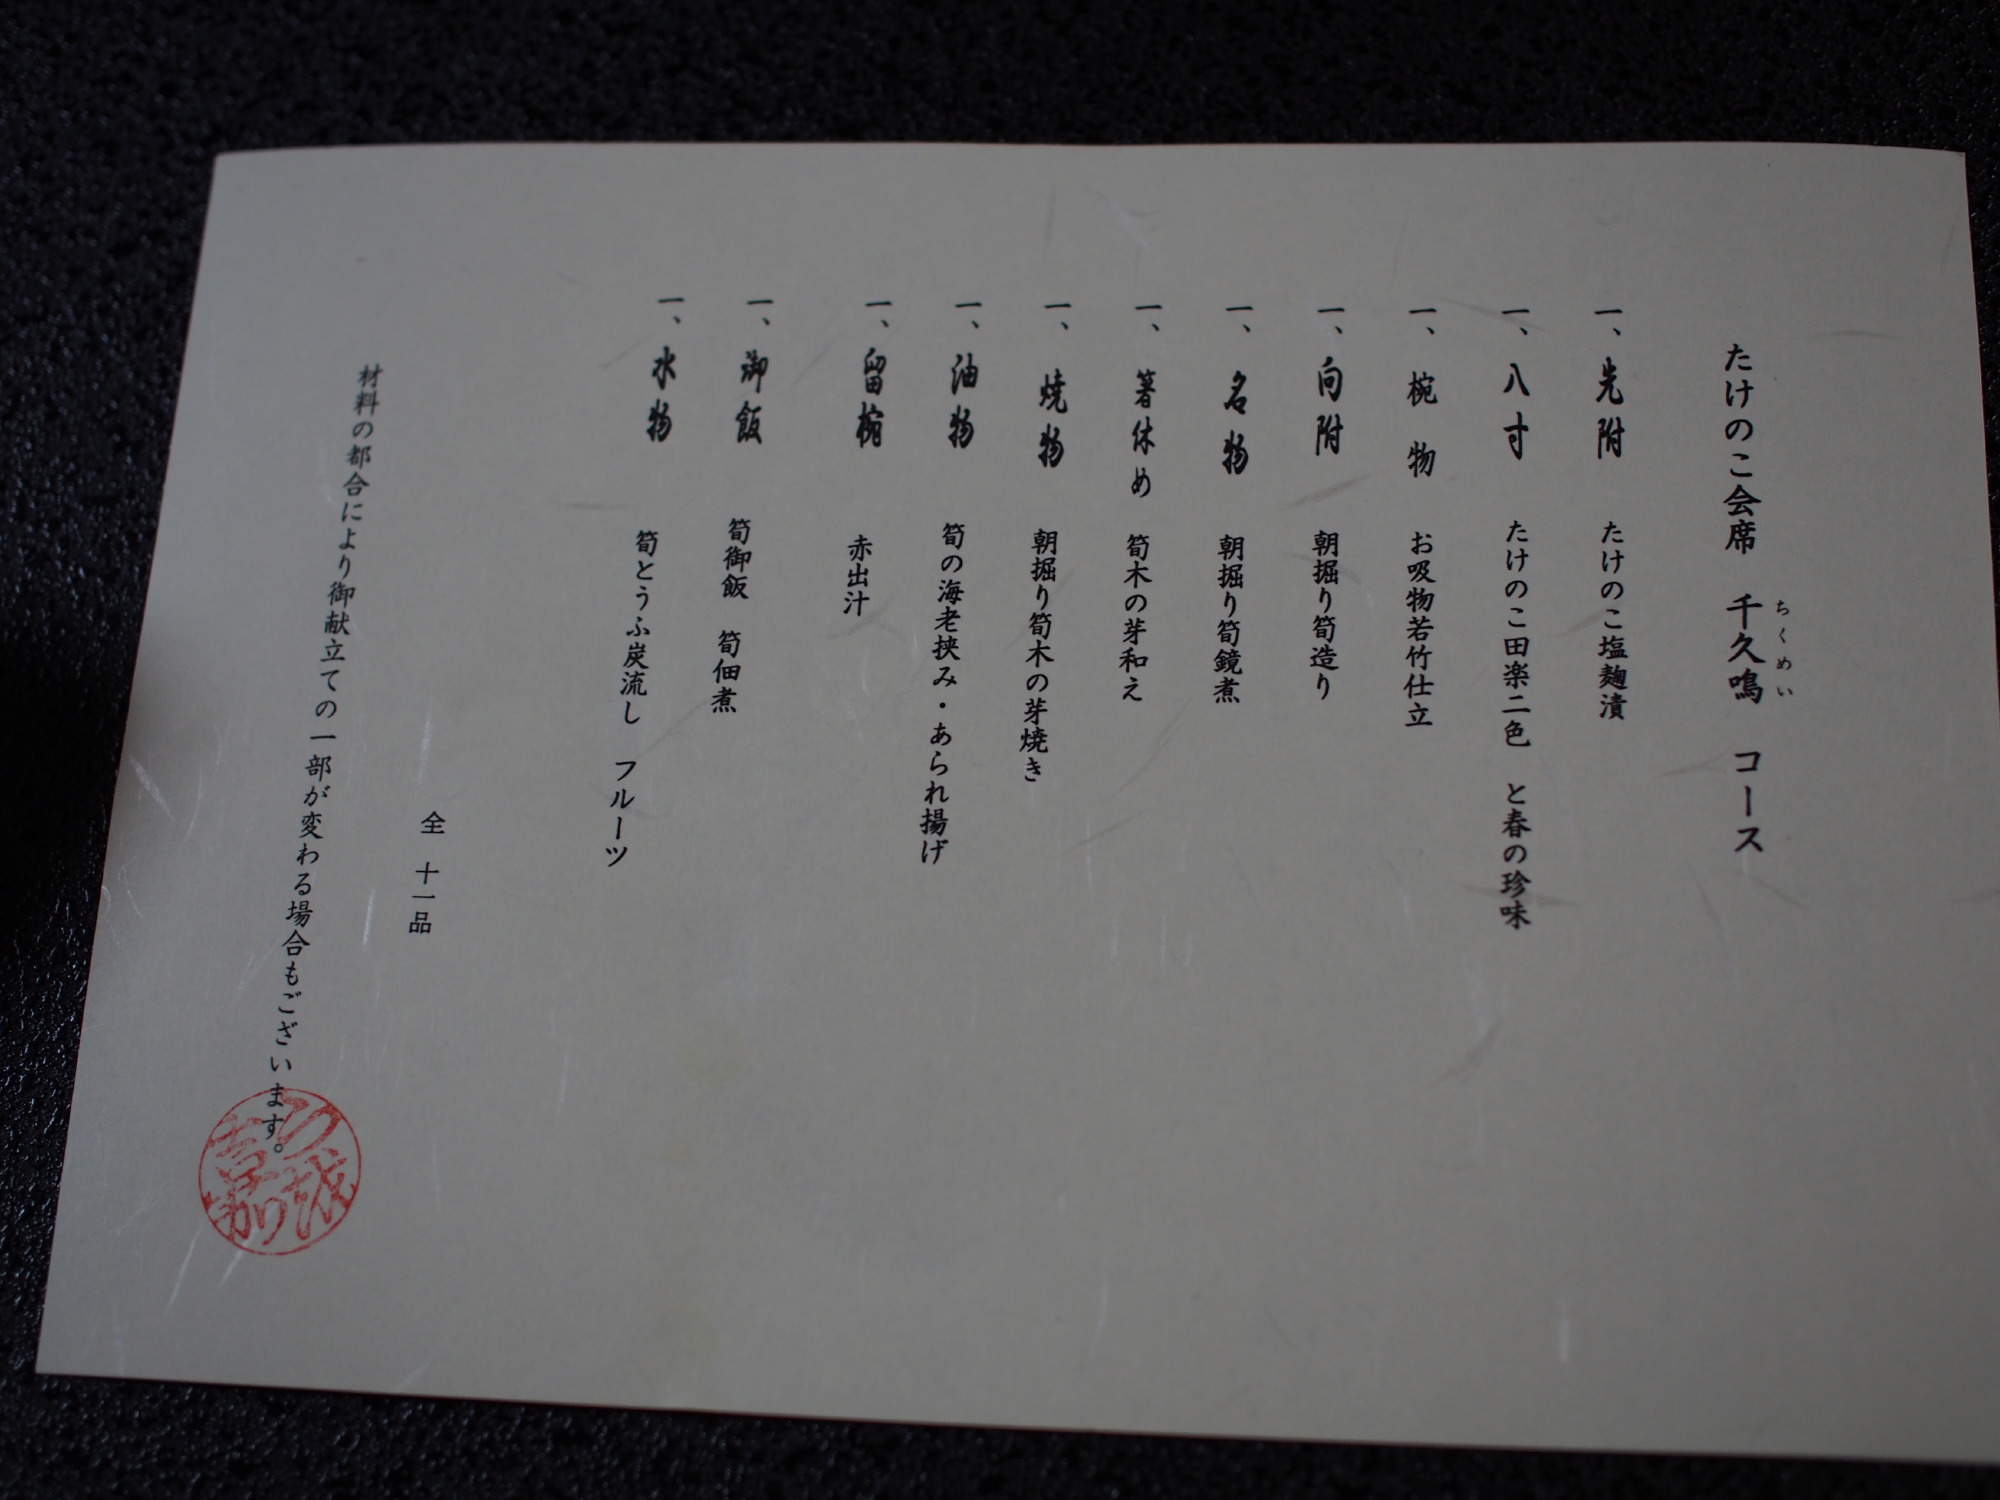 たけのこ会席　千久鳴　コース
ちくめい
一、先附　たけのこ塩麹漬
一、八寸　たけのこ田楽二色　と春の珍味
一、椀物　お吸物若竹仕立
一、向附　朝掘り筍造り
一、名物　朝掘り筍鏡煮
一、箸休め　筍木の芽和え
一、焼物　朝掘り筍木の芽焼き
一、油物　筍の海老挟み・あられ揚げ
一、留椀　赤出汁
一、御飯　筍御飯　筍佃煮
一、水物　筍とうふ炭流し　フルーツ
全　十一品
材料の都合により御献立ての一部が変わる場合もございます。